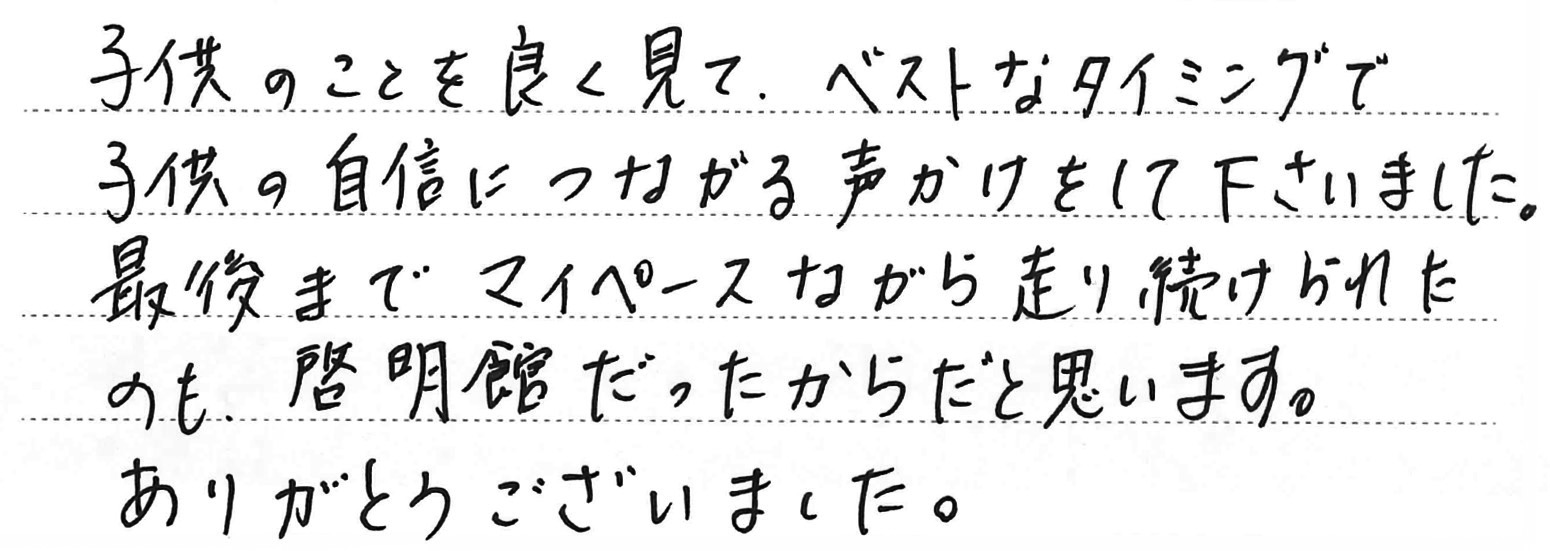 子供のことを良く見て、ベストなタイミングで
子供の自信につながる声かけをして下さいました。
最後までマイペースながら走り続けられた
のも、啓明館だったからだと思います。
ありがとうございました。